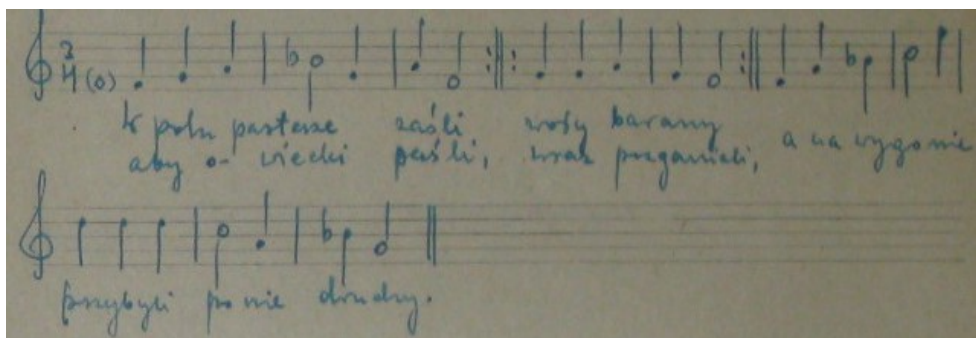 W polu pasterze zaśli, woły barany
aby o- wiecki paśli, wraz a na wygonie
przybyli po nie drudzy.